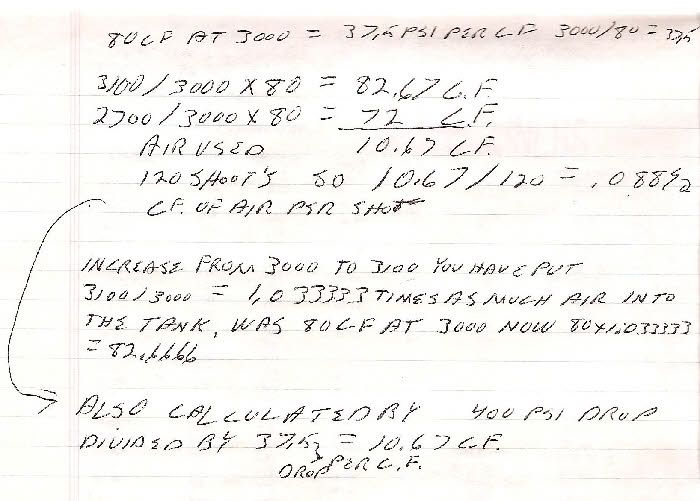 80 CF AT 3000 = 37.5 PSI PER CF 3000/80 = 37.5
3100/3000 X 80 = 82.67 C.F.
2700/3000 X 80 = 72 C.F.
AIR USED 10.67 CF.
120 SHOOT'S SO 10.67/120 = .0889
CF. OF AIR PER SHOT
INCREASE FROM 3000 TO 3100 YOU HAVE PUT
3100/3000 = 1.033333 TIMES AS MUCH AIR INTO
THE TANK, WAS 80 CF AT 3000 NOW 80X1.033333
= 82.6666
ALSO CALCULATED BY 400 PSI DROP
DIVIDED BY 37.5 = 10.67 CF.
DROP PER C.F.